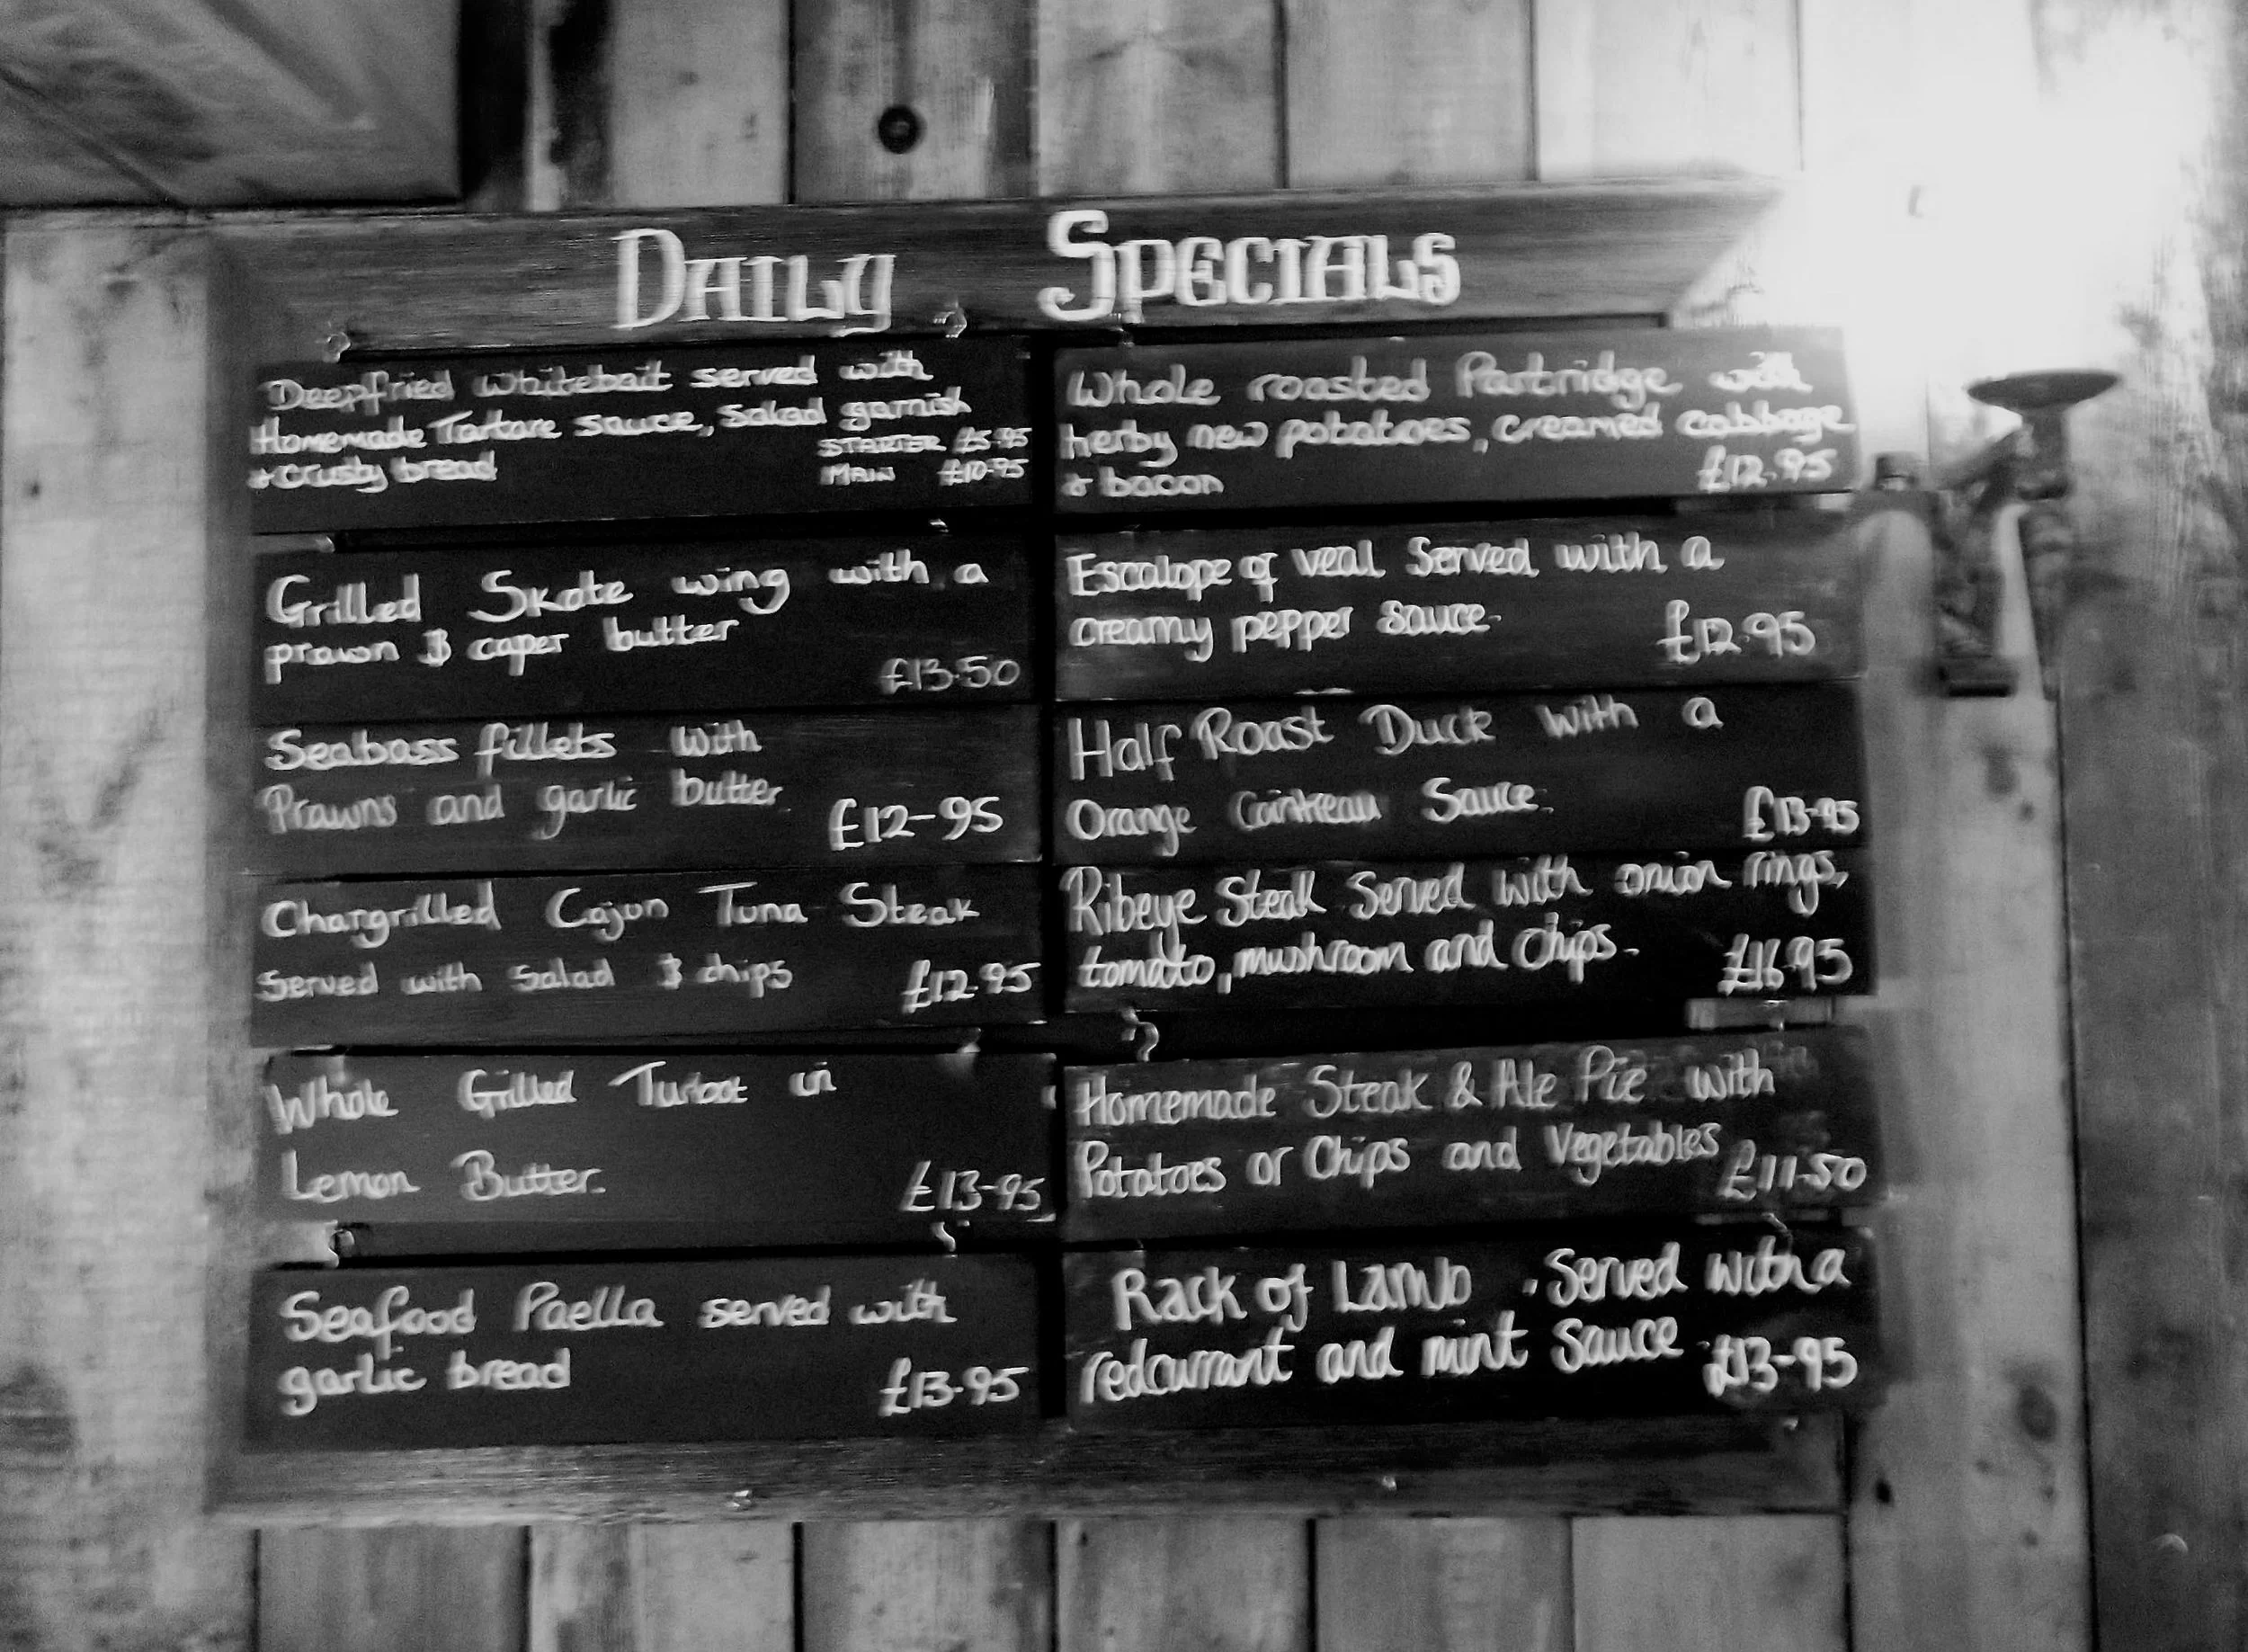 DAILY SPECIALS
Deepfried Whitebait served with
Homemade Tartare sauce, salad garnish
& crusty bread
STARTER £5.95
MAIN £10.95
Grilled Skate wing with a
prawn & caper butter
£13.50
Seabass fillets with
Prawns and garlic butter.
£12-95
Chargrilled Cajun Tuna Steak
Served with Salad & chips
£12.95
Whole Grilled Turbot in
Lemon Butter.
£13-95
Seafood Paella served with
garlic bread
£13.95
Whole roasted Partridge with
herby new potatoes, creamed cabbage
& bacon
£12.95
Escalope of veal Served with a
creamy pepper sauce.
£12.95
Half Roast Duck with a
Orange Cointreau Sauce.
£13-95
Ribeye Steak Served with onion rings,
tomato, mushroom and chips.
£16.95
Homemade Steak & Ale Pie with
Potatoes or Chips and Vegetables
£11.50
Rack of Lamb . Served with a
redcurrant and mint Sauce
£13-95